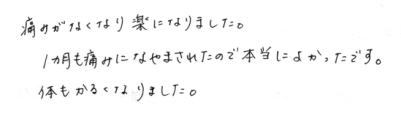 痛みがなくなり楽になりました。
1カ月も痛みになやまされたので本当によかったです。
体もかるくなりました。